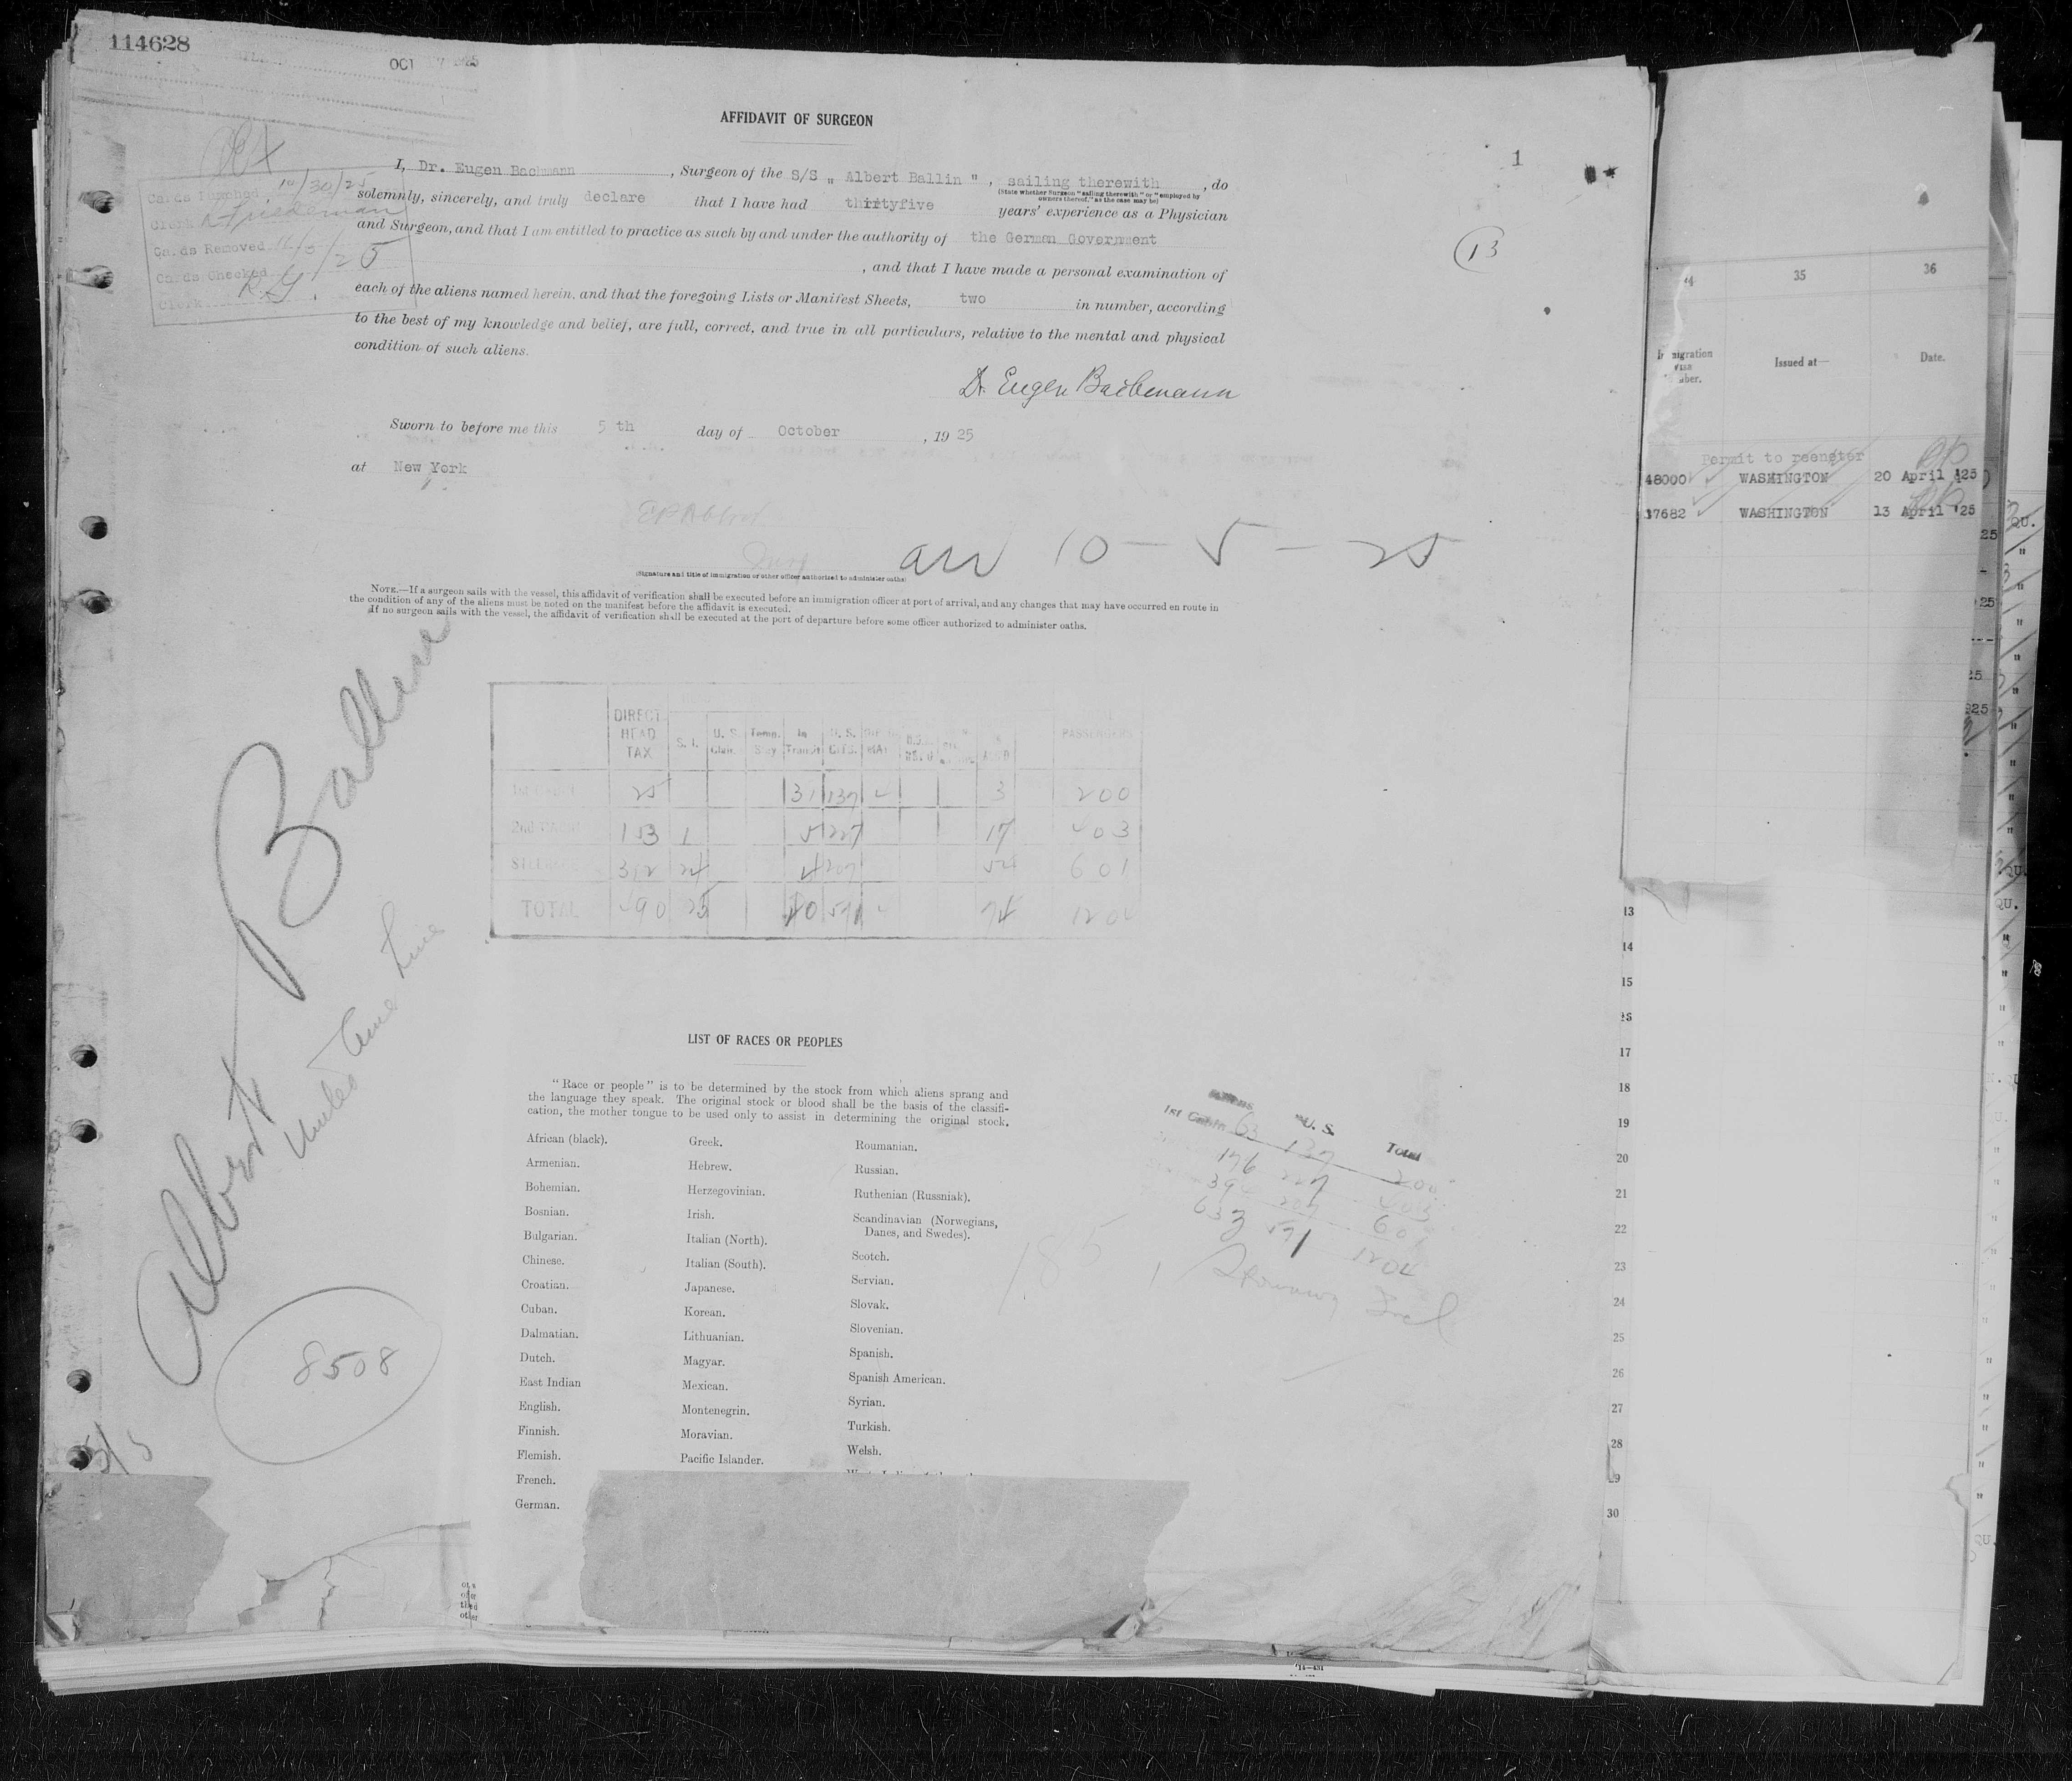 114628
OCT 7 1925
AFFIDAVIT OF SURGEON
1
I, Dr. Eugen Bachmann, Surgeon of the S/S " Albert Ballin ", sailing therewith, do
(State whether Surgeon "sailing therewith" or "employed by
owners thereof," as the case may be)
solemnly, sincerely, and truly declare that I have had thirtyfive years' experience as a Physician
and Surgeon, and that I am entitled to practice as such by and under the authority of the German Government
, and that I have made a personal examination of
each of the aliens named herein, and that the foregoing Lists or Manifest Sheets, two in number, according
to the best of my knowledge and belief, are full, correct, and true in all particulars, relative to the mental and physical
condition of such aliens.
Dr. Eugen Bachmann
Sworn to before me this 5 th day of October, 19 25
at New York
arr 10 - 5 - 25
(Signature and title of immigration or other officer authorized to administer oaths)
NOTE.—If a surgeon sails with the vessel, this affidavit of verification shall be executed before an immigration officer at port of arrival, and any changes that may have occurred en route in
the condition of any of the aliens must be noted on the manifest before the affidavit is executed.
If no surgeon sails with the vessel, the affidavit of verification shall be executed at the port of departure before some officer authorized to administer oaths.
Cards Punched 10/30/25
Clerk A Friedeman
Cards Removed
Cards Checked
Clerk R.G.
13
Albert Ballin
United Amer Line
8508
DIRECT HEAD TAX
S. I.
U. S.
Temp. Stay
In Transit
U. S. CITS.
PASSENGERS
25 31 137 3 200
2nd CABIN 153 1 5 227 17 403
STEERAGE 312 24 4 207 54 601
TOTAL 490 25 40 571 74 1204
LIST OF RACES OR PEOPLES
"Race or people" is to be determined by the stock from which aliens sprang and
the language they speak. The original stock or blood shall be the basis of the classifi-
cation, the mother tongue to be used only to assist in determining the original stock.
African (black).
Armenian.
Bohemian.
Bosnian.
Bulgarian.
Chinese.
Croatian.
Cuban.
Dalmatian.
Dutch.
East Indian
English.
Finnish.
Flemish.
French.
German.
Greek.
Hebrew.
Herzegovinian.
Irish.
Italian (North).
Italian (South).
Japanese.
Korean.
Lithuanian.
Magyar.
Mexican.
Montenegrin.
Moravian.
Pacific Islander.
Roumanian.
Russian.
Ruthenian (Russniak).
Scandinavian (Norwegians,
Danes, and Swedes).
Scotch.
Servian.
Slovak.
Slovenian.
Spanish.
Spanish American.
Syrian.
Turkish.
Welsh.
Aliens U. S. Total
1st Cabin 63 137 200
176 227 403
394 207 601
633 571 1204
185
35
36
Issued at—
Date.
Permit to reeneter
48000 WASHINGTON 20 April '25
37682 WASHINGTON 13 April '25
13
14
15
16
17
18
19
20
21
22
23
24
25
26
27
28
29
30